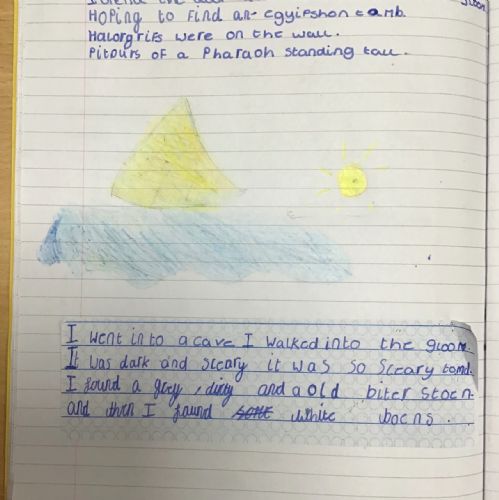 Hoping to Find an egyipshon tomb.
Halorgrifs were on the wall.
Pitours of a Pharaoh standing tall.
I went into a cave I walked into the gloom.
It was dark and scary it was so scary tomd.
I found a grey, dirty and a old biter stoen.
and then I found some white boens...